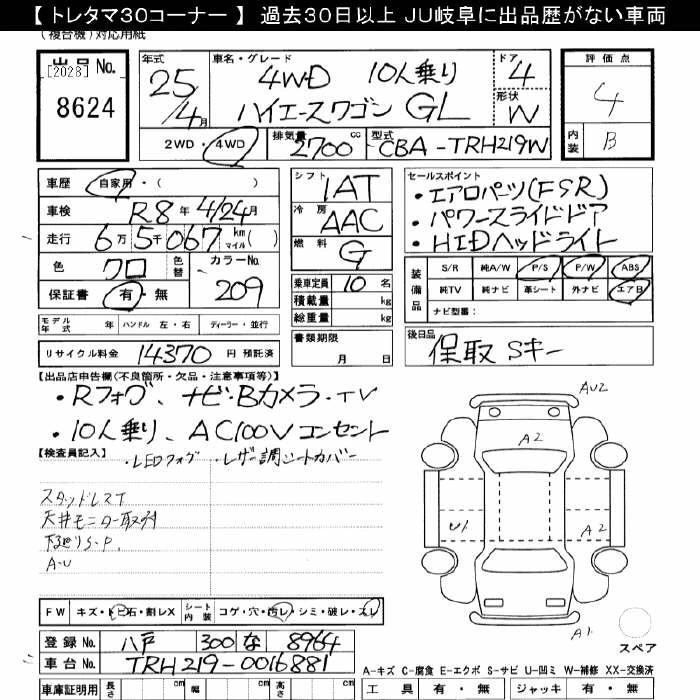 【 トレタマ30コーナー 】 過去30日以上 JU岐阜に出品歴がない車両
(複合機)対応用紙
出品No.
[2028]
8624
年式
25/4月
車名・グレード
4WD 10人乗り
ハイエースワゴン GL
ドア
4
形状
W
評価点
4
内装
B
2WD・4WD
排気量
2700cc
型式
CBA-TRH219W
車歴 自家用・( )
車検 R8年4/24月
走行 6万5千067km マイル( )
色 クロ 色替
カラーNo.
209
保証書 有・無
モデル年式 年 ハンドル 左・右 ディーラー・並行
リサイクル料金 14370 円 預託済
シフト
IAT
冷房
AAC
燃料
G
乗車定員 10名
積載量 kg
総重量 kg
書類期限
月 日
セールスポイント
・エアロパーツ(FSR)
・パワースライドドア
・HIDヘッドライト
装備品
S/R 純A/W P/S P/W ABS
純TV 純ナビ 革シート 外ナビ エアB
ナビ型番:
後日品
保取 Sキー
【出品店申告欄(不良箇所・欠品・注意事項等)】
・Rフォグ、ナビ・Bカメラ・TV
・10人乗り、AC100Vコンセント
・LEDフォグ ・レザー調シートカバー
【検査員記入】
スタッドレスT
天井モニター取付
下廻りS・P.
A・U
AU2
A2
U1
A2
A1
スペア
FW キズ・トビ石・割レX
シート内装 コゲ・穴・汚レ・シミ・破レ・スレ
登録No. 八戸 300 な 8964
車台No. TRH219-0016881
車庫証明用 長さ cm 幅 cm 高さ cm
A-キズ C-腐食 E-エクボ S-サビ U-凹ミ W-補修 XX-交換済
工具 有・無 ジャッキ 有・無